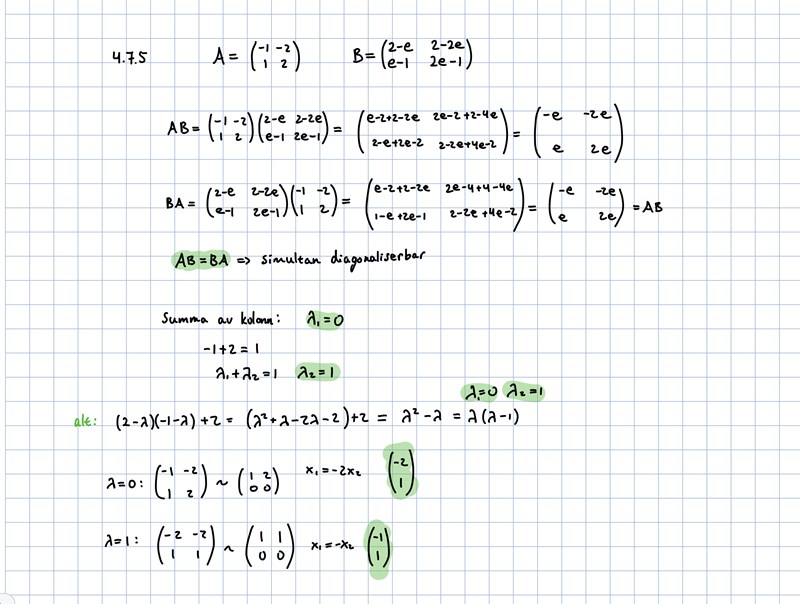 4.7.5 A = (-1 -2; 1 2) B = (2-e 2-2e; e-1 2e-1)
AB = (-1 -2; 1 2)(2-e 2-2e; e-1 2e-1) = (e-2+2-2e 2e-2+2-4e; 2-e+2e-2 2-2e+4e-2) = (-e -2e; e 2e)
BA = (2-e 2-2e; e-1 2e-1)(-1 -2; 1 2) = (e-2+2-2e 2e-4+4-4e; 1-e+2e-1 2-2e+4e-2) = (-e -2e; e 2e) = AB
AB=BA => simultan diagonaliserbar
Summa av kolonn: λ₁=0
-1+2=1
λ₁+λ₂=1 λ₂=1
λ₁=0 λ₂=1
alt: (2-λ)(-1-λ)+2 = (λ²+λ-2λ-2)+2 = λ²-λ = λ(λ-1)
λ=0: (-1 -2; 1 2) ~ (1 2; 0 0) x₁=-2x₂ (-2; 1)
λ=1: (-2 -2; 1 1) ~ (1 1; 0 0) x₁=-x₂ (-1; 1)